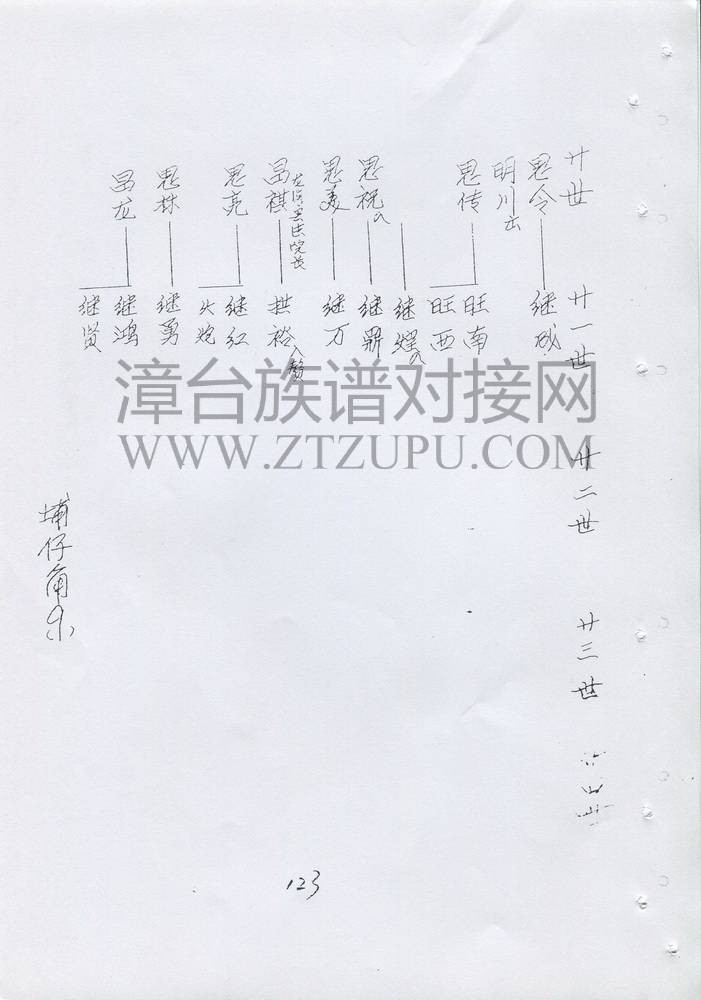 廿世
廿一世
廿二世
廿三世
思令
继
明川出
思传
旺南
旺西
继煌
思祝
继鼎
思美
继万
昌祺
法院院长
拱裕入赘
思亮
继红
火炮
思林
继勇
昌龙
继鸿
继贤
埔仔角
漳台族谱对接网
WWW.ZTZUPU.COM
123